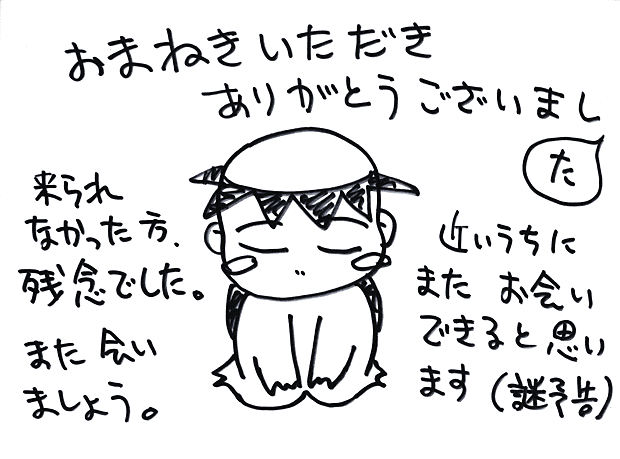 おまねきいただき
ありがとうございまし
た
来られ
なかった方、
残念でした。
また会い
ましょう。
近いうちに
また お会い
できると思い
ます(謎予告)